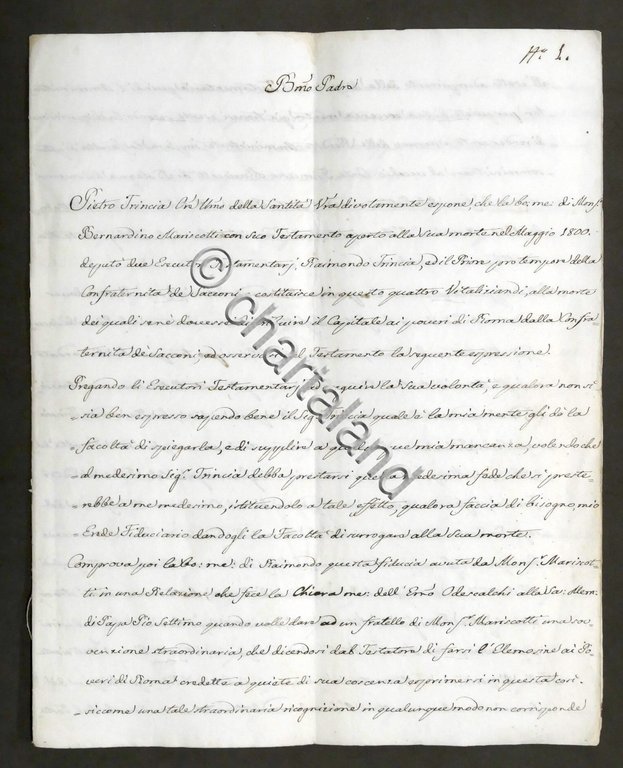 N.º 1.
Bmo Padre
Pietro Trincia Ore Umo della Santità Vra divotamente espone che la bo: me: di Mons.r
Bernardino Mariscotti con suo Testamento aperto alla sua morte nel Maggio 1800.
deputò due Esecutori Testamentarj, Raimondo Trincia, ed il Priore pro tempore della
Confraternita de' Sacconi, costituisce in questo quattro Vitaliziandi, alla morte
dei quali se ne dovesse il Capitale ai poveri di Roma dalla Confra=
ternita de Sacconi; ed osservasi nel Testamento la seguente espressione.
Pregando li Esecutori Testamentarj ad eseguire la sua volontà, e qualora non si
sia ben espresso sapendo bene il Sig.r Trincia quale è la mia mente gli dò la
facoltà di spiegarla, e di supplire a qualunque mia mancanza, volendo che
al medesimo Sig.r Trincia debba prestarsi quella medesima fede che si preste=
rebbe a me medesimo, istituendolo a tale effetto, qualora faccia di bisogno, mio
Erede Fiduciario dandogli la Facoltà di surrogare alla sua morte.
Comprova poi la bo: me: di Raimondo questa fiducia avuta da Mons.r Mariscot=
ti in una Relazione che fece la Chiara me: dell' Emo Odescalchi alla Sa: Mem:
di Papa Pio Settimo quando volle dare ad un fratello di Mons.r Mariscotti una sov=
venzione straordinaria, che dicendosi dal Testatore di farsi l'Elemosine ai Po=
veri di Roma credette a quiete di sua coscenza esprimersi in questa cosi.
siccome una tale straordinaria ricognizione in qualunque modo non corrisponde
© chartaland